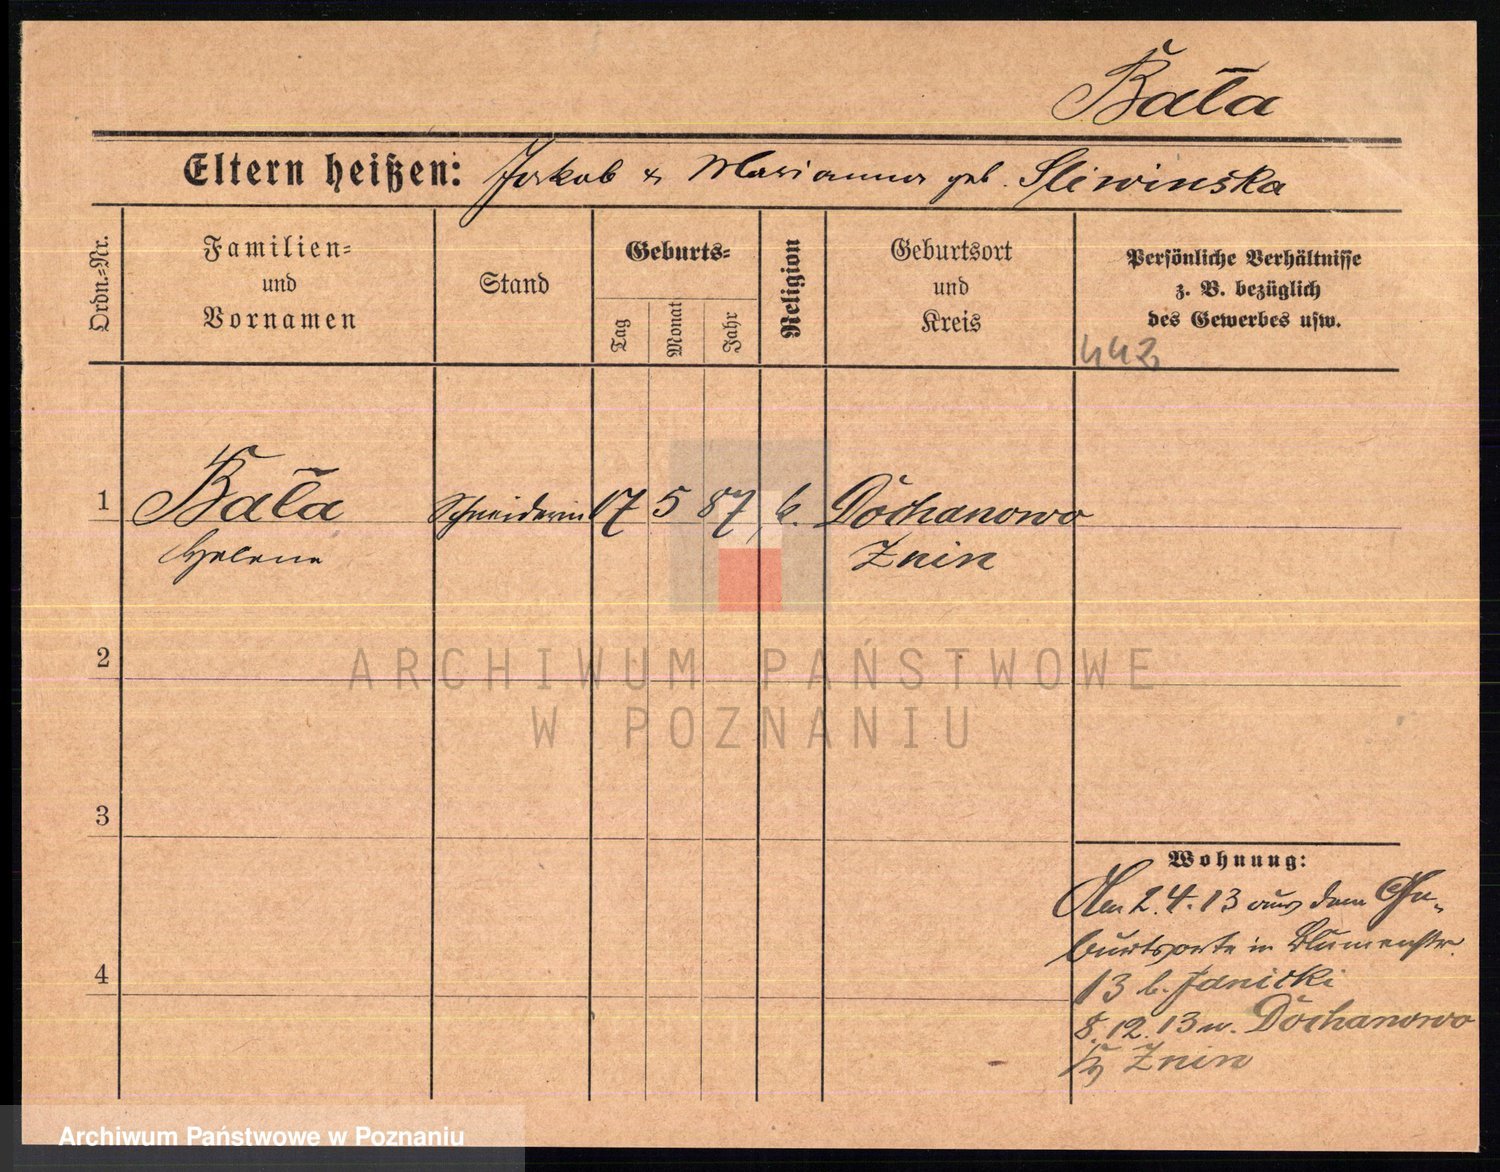 Bała
Eltern heißen: Jakob & Marianna geb. Sliwinska
Ordn.=Nr.
Familien=
und
Vornamen
Stand
Geburts=
Tag
Monat
Jahr
Religion
Geburtsort
und
Kreis
Persönliche Verhältnisse
z. B. bezüglich
des Gewerbes usw.
442
1 Bała Schneiderin 17 5 87 k. Dochanowo
Helene Znin
2
3
4
Wohnung:
Am 2.4.13 aus dem Ge-
burtsorte in Blumenstr.
13 b. Janicki
8.12.13 n. Dochanowo
Znin
ARCHIWUM PAŃSTWOWE
W POZNANIU
Archiwum Państwowe w Poznaniu